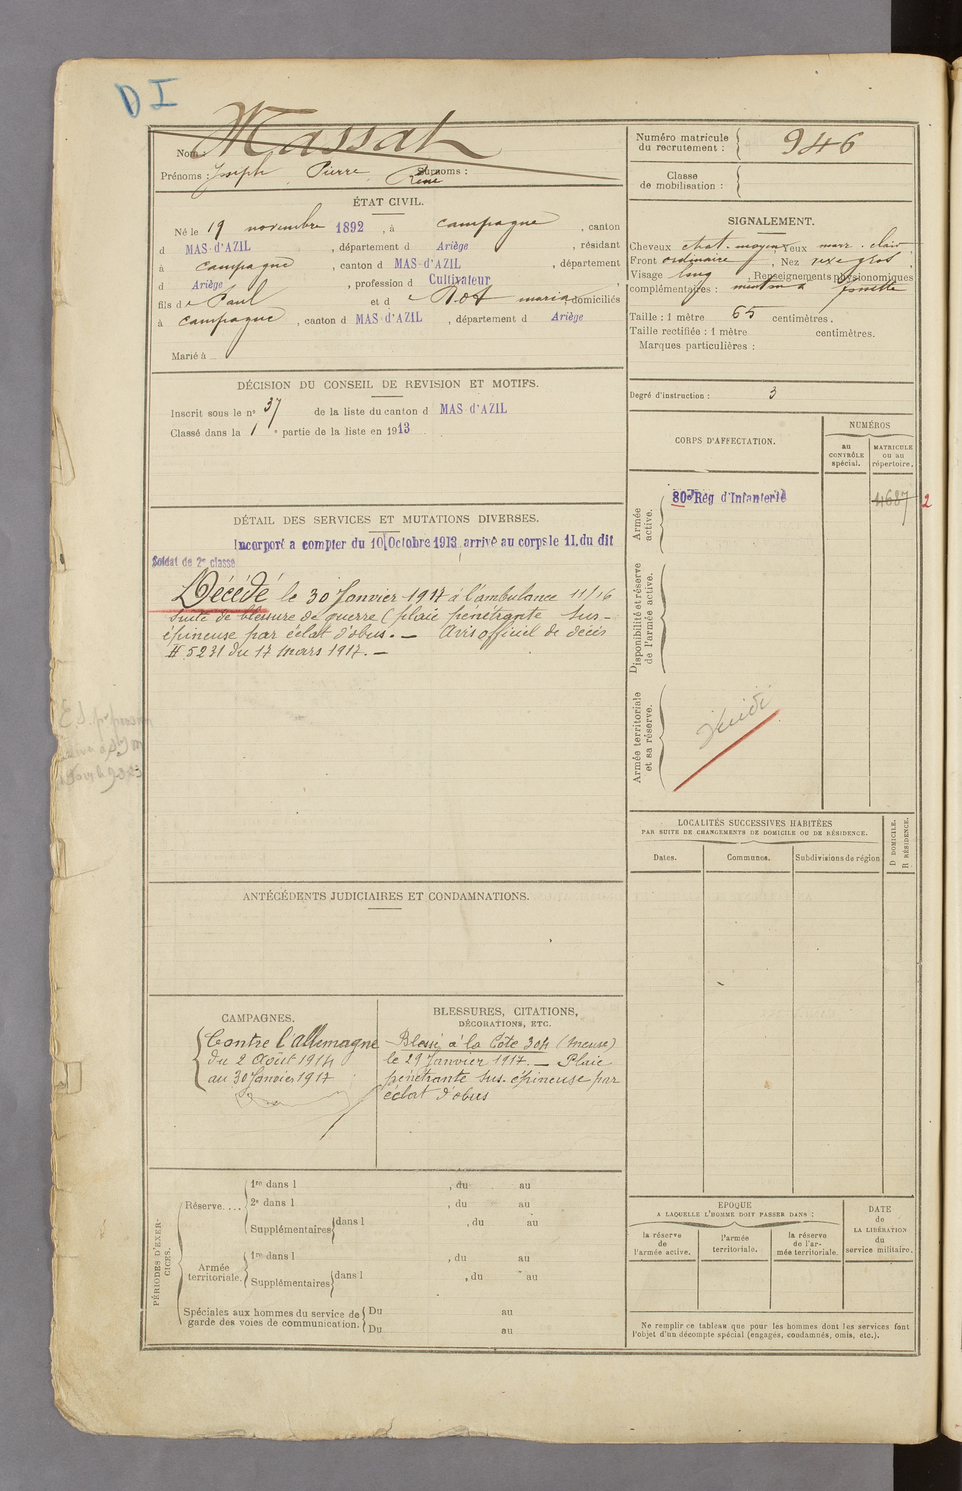 D I
Massat
Nom :
Prénoms : Joseph Pierre René Surnoms :
ÉTAT CIVIL.
Né le 19 novembre 1892, à Campagne, canton
d MAS-d'AZIL, département d Ariège, résidant
à Campagne, canton d MAS-d'AZIL, département
d Ariège, profession d Cultivateur
fils de Paul et de maria domiciliés
à Campagne, canton d MAS-d'AZIL, département d Ariège
Marié à
DÉCISION DU CONSEIL DE REVISION ET MOTIFS.
Inscrit sous le n° 37 de la liste du canton d MAS-d'AZIL
Classé dans la 1e partie de la liste en 1913
DÉTAIL DES SERVICES ET MUTATIONS DIVERSES.
Incorporé a compter du 10 Octobre 1913 arrivé au corps le 11, du dit
Soldat de 2e classe
Décédé le 30 Janvier 1917 à l'ambulance 11/16
suite de blessure de guerre (plaie pénétrante sus-
épineuse par éclat d'obus. — Avis officiel de décès
# 5231 du 17 mars 1917. —
ANTÉCÉDENTS JUDICIAIRES ET CONDAMNATIONS.
CAMPAGNES.
Contre l'Allemagne
du 2 Août 1914
au 30 Janvier 1917
BLESSURES, CITATIONS,
DÉCORATIONS, ETC.
Blessé à la Côte 304 (Meuse)
le 29 Janvier 1917. — Plaie
pénétrante sus-épineuse par
éclat d'obus
PÉRIODES D'EXER-
CICES.
Réserve....
1re dans l , du au
2e dans l , du au
Supplémentaires dans l , du au
Armée
territoriale.
1re dans l , du au
Supplémentaires dans l , du au
Spéciales aux hommes du service de
garde des voies de communication.
Du au
Du au
Numéro matricule
du recrutement : 946
Classe
de mobilisation :
SIGNALEMENT.
Cheveux chat. moyen Yeux marr. clair
Front ordinaire, Nez vexe gros
Visage long, Renseignements physionomiques
complémentaires : menton à fossette
Taille : 1 mètre 65 centimètres.
Taille rectifiée : 1 mètre centimètres.
Marques particulières :
Degré d'instruction : 3
CORPS D'AFFECTATION.
NUMÉROS
au
CONTRÔLE
spécial.
MATRICULE
ou au
répertoire.
Armée
active.
80e Rég d'Infanterie
4687
2
Disponibilité et réserve
de l'armée active.
Armée territoriale
et sa réserve.
LOCALITÉS SUCCESSIVES HABITÉES
PAR SUITE DE CHANGEMENTS DE DOMICILE OU DE RÉSIDENCE.
Dates.
Communes.
Subdivisions de région
D DOMICILE.
R RÉSIDENCE.
EPOQUE
A LAQUELLE L'HOMME DOIT PASSER DANS :
la réserve
de
l'armée active.
l'armée
territoriale.
la réserve
de l'ar-
mée territoriale.
DATE
de
LA LIBÉRATION
du
service militaire.
Ne remplir ce tableau que pour les hommes dont les services font
l'objet d'un décompte spécial (engagés, condamnés, omis, etc.).